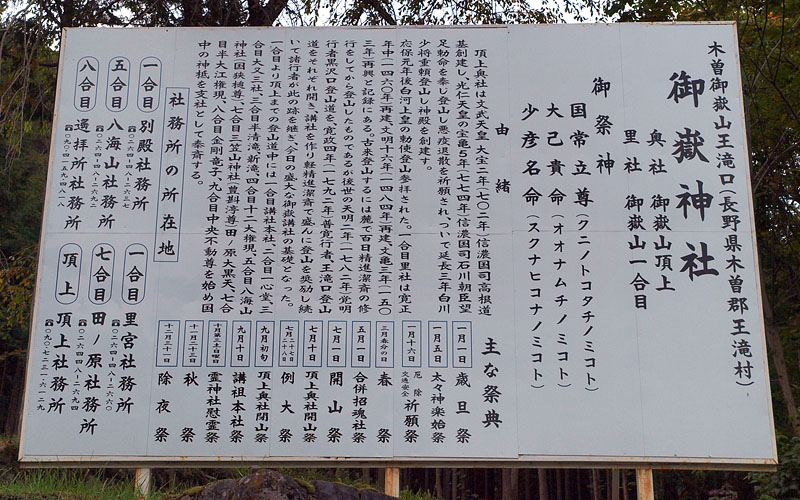 木曽御嶽山王滝口(長野県木曽郡王滝村)
御嶽神社
奥社 御嶽山頂上
里社 御嶽山一合目
御祭神
国常立尊(クニノトコタチノミコト)
大己貴命(オオナムチノミコト)
少彦名命(スクナヒコナノミコト)
由緒
頂上奥社は文武天皇大宝二年(七〇二年)信濃国司高根道
基創建し、光仁天皇の宝亀五年(七七四年)信濃国司石川朝臣望
足勅命を奉じ登山し悪疫退散を祈願され、ついで延長三年白川
少将重頼登山し神殿を創建す。
応保元年後白河上皇の勅使登山参拝された。一合目里社は寛正
年中(一四六〇年)再建、文明十六年(一四八四年)再建、文亀三年(一五〇
三年)再興と記録にある。古来登山するには麓で百日精進潔斎の修
行をしてから登山したものであるが後世の天明二年(一七八二年)覚明
行者黒沢口登山道を、寛政四年(一七九二年)普寛行者、王滝口登山
道をそれぞれ開き、講社を作り軽精進潔斎で盛んに登山を奨励し続
いて諸行者が此の跡を継ぎ今日の盛大な御嶽講社の基礎となった。
一合目より頂上までの登山道中には一合目講社本社、二合目一心堂、三
合目大又三社、三合目半清滝、新滝、四合目十二大権現、五合目八海山
神社(国狭槌尊)、七合目三笠山神社(豊斟渟尊)田ノ原大黒天、七合
目半大江権現、八合目金剛竜子、九合目中央不動尊を始め国
中の神祇を末社として奉斎する。
主な祭典
一月一日 歳旦祭
一月五日 太々神楽始祭
一月十六日 厄除 交通安全 祈願祭
三月春分の日 春祭
五月一日 合併招魂社祭
七月一日 開山祭
七月十日 頂上奥社開山祭
七月二十七日 二十八日 例大祭
九月初旬 頂上奥社閉山祭
九月十日 講祖本社祭
十月第三土日曜日 霊神社慰霊祭
十一月二十三日 秋祭
十二月三十一日 除夜祭
社務所の所在地
一合目 別殿社務所
☎〇二六四-四八-二六三七
五合目 八海山社務所
☎〇二六四-四八-二六二九
八合目 遙拝所社務所
☎〇九〇-四一五九-四八一八
一合目 里宮社務所
☎〇二六四-四八-二六六〇
七合目 田ノ原社務所
☎〇二六四-四八-二六九四
頂上 頂上社務所
☎〇九〇-七二三一-六一二九